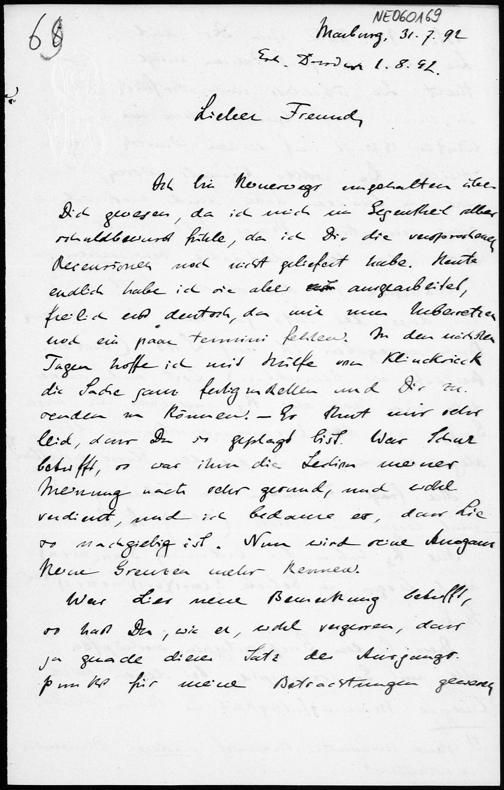 NED60169
68
Marburg, 31.7.92
Erh. Dresden 1.8.92.
Lieber Freund,
Ich bin keineswegs ungehalten über
Dich gewesen, da ich mich im Gegentheil selber
schuldbewusst fühle, da ich Dir die versprochenen
Recensionen noch nicht geliefert habe. Heute
endlich habe ich sie aber ausgearbeitet,
freilich erst deutsch, da mir zum Uebersetzen
noch ein paar termini fehlen. In den nächsten
Tagen hoffe ich mit Hülfe von Klincksieck
die Sache ganz fertigzustellen und Dir zu
senden zu können. – Es thut mir sehr
leid, dass Du so geplagt bist. Was
betrifft, so war ihm die Lection meiner
Meinung nach sehr gesund, und wohl
verdient, und ich bedaure es, dass Lie
so nachgiebig ist. Nun wird seine Arroganz
keine Grenzen mehr kennen.
Was Lies neue Bemerkung betrifft,
so hast Du, wie er, wohl vergessen, dass
ja gerade dieser Satz der Ausgangs-
punkt für meine Betrachtungen gewesen